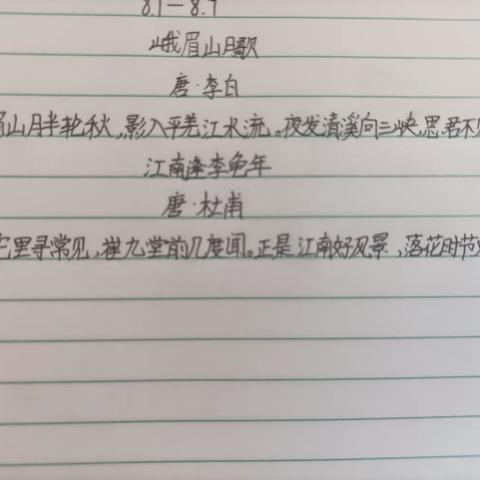 8.1-8.7
峨眉山月歌
唐·李白
眉山月半轮秋,影入平羌江水流。夜发清溪向三峡,思君不见
江南逢李龟年
唐·杜甫
宅里寻常见,崔九堂前几度闻。正是江南好风景,落花时节